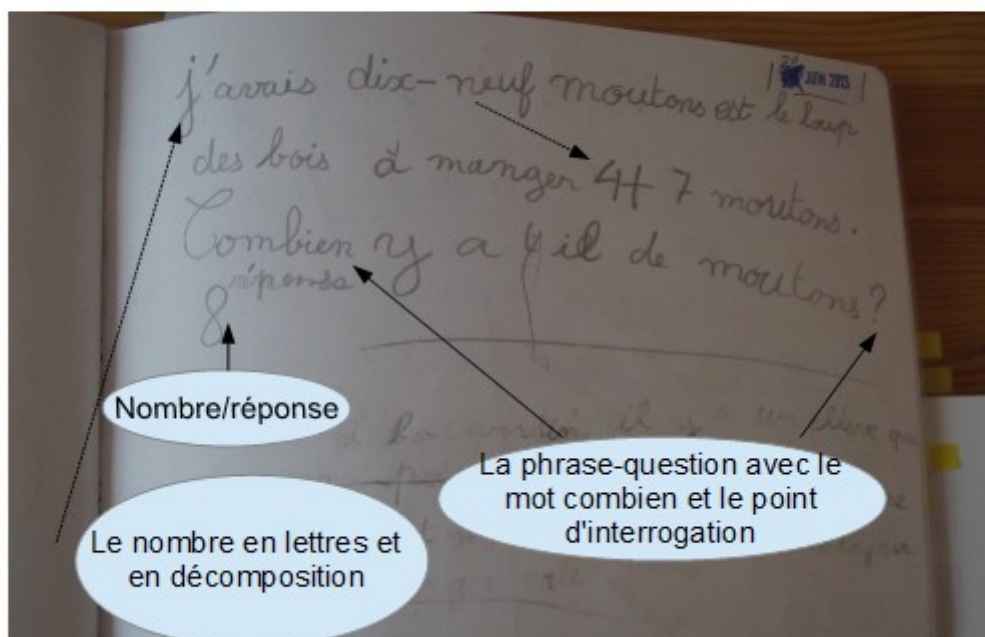 20 JUIN 2013
j'avais dix-neuf moutons est le loup
des bois à manger 4+7 moutons.
Combien y a t il de moutons?
réponse
8
Nombre/réponse
il y a
La phrase-question avec le
mot combien et le point
d'interrogation
Le nombre en lettres et
en décomposition